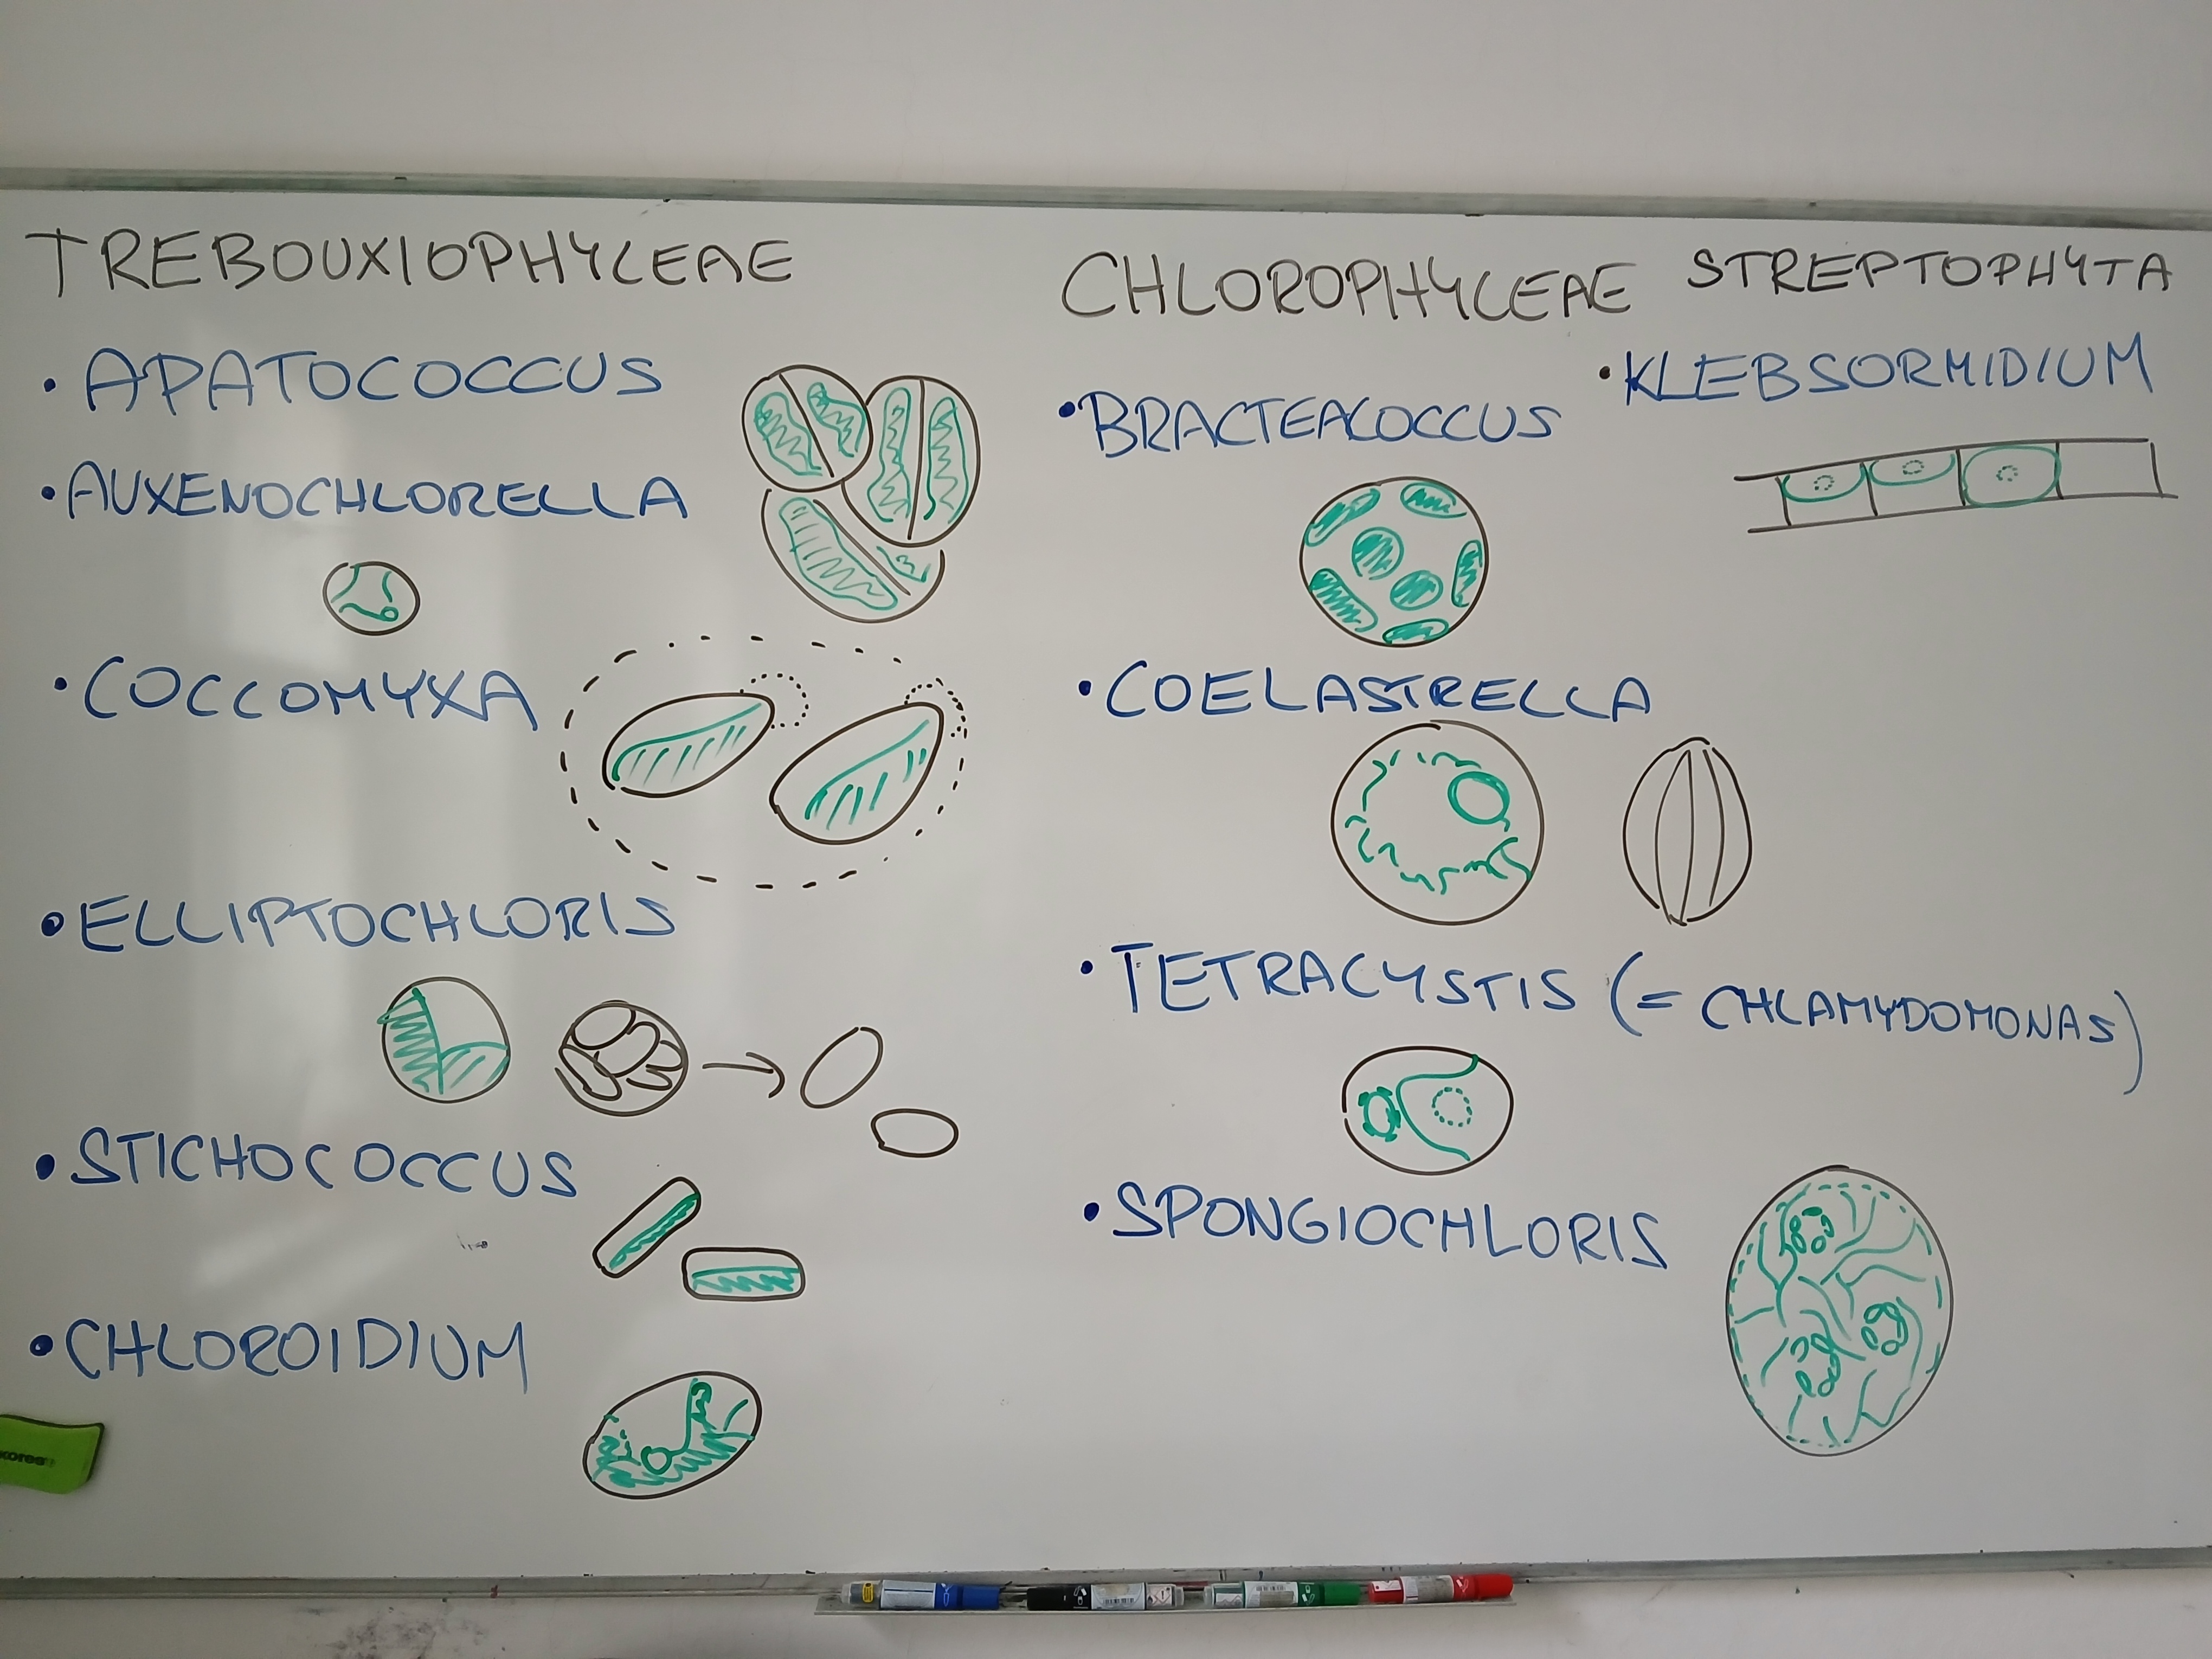 TREBOUXIOPHYCEAE
• APATOCOCCUS
• AUXENOCHLORELLA
• COCCOMYXA
• ELLIPTOCHLORIS
• STICHOCOCCUS
• CHLOROIDIUM
CHLOROPHYCEAE
• BRACTEACOCCUS
• COELASTRELLA
• TETRACYSTIS (= CHLAMYDOMONAS)
• SPONGIOCHLORIS
STREPTOPHYTA
• KLEBSORMIDIUM
kores